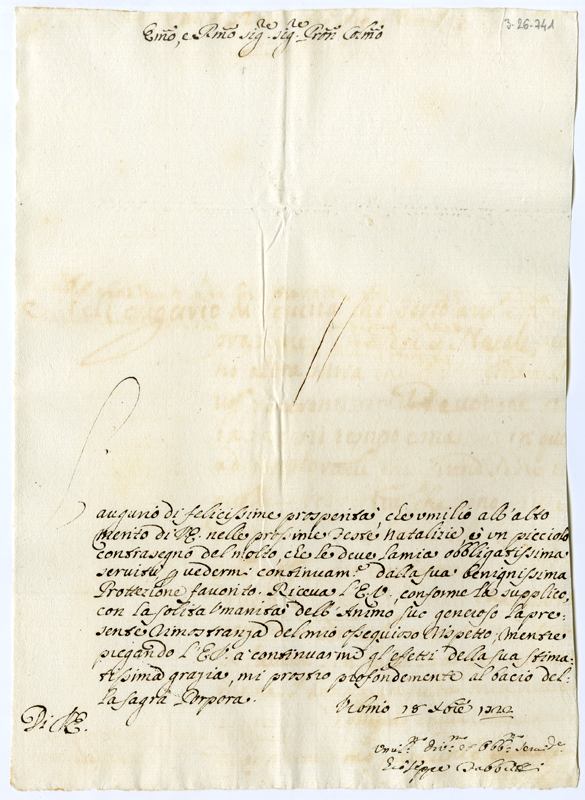 3-26-741
Em̃o, e Rm̃o Sig.re Sig.re Pron̄ Colm̃o
L'augurio di felicissime prosperità, che umilio all'alto
merito di V.E. nelle prossime Feste Natalizie, è un picciolo
contrasegno del molto, che le deve la mia obbligatissima
servitù p vedermi continuam.te dalla sua benignissima
Protezione favorito. Riceva l'E.V., conforme la supplico,
con la solita Umanità dell'Animo suo generoso la pre:
sente dimostranza del mio ossequioso rispetto, mentre
piegando l'E.V. à continuarmi gl'effetti della sua stima:
tissima grazia, mi prostro profondemente al bacio del:
la sagra Porpora.
Di V.E.
18 Xbre
Giuseppe